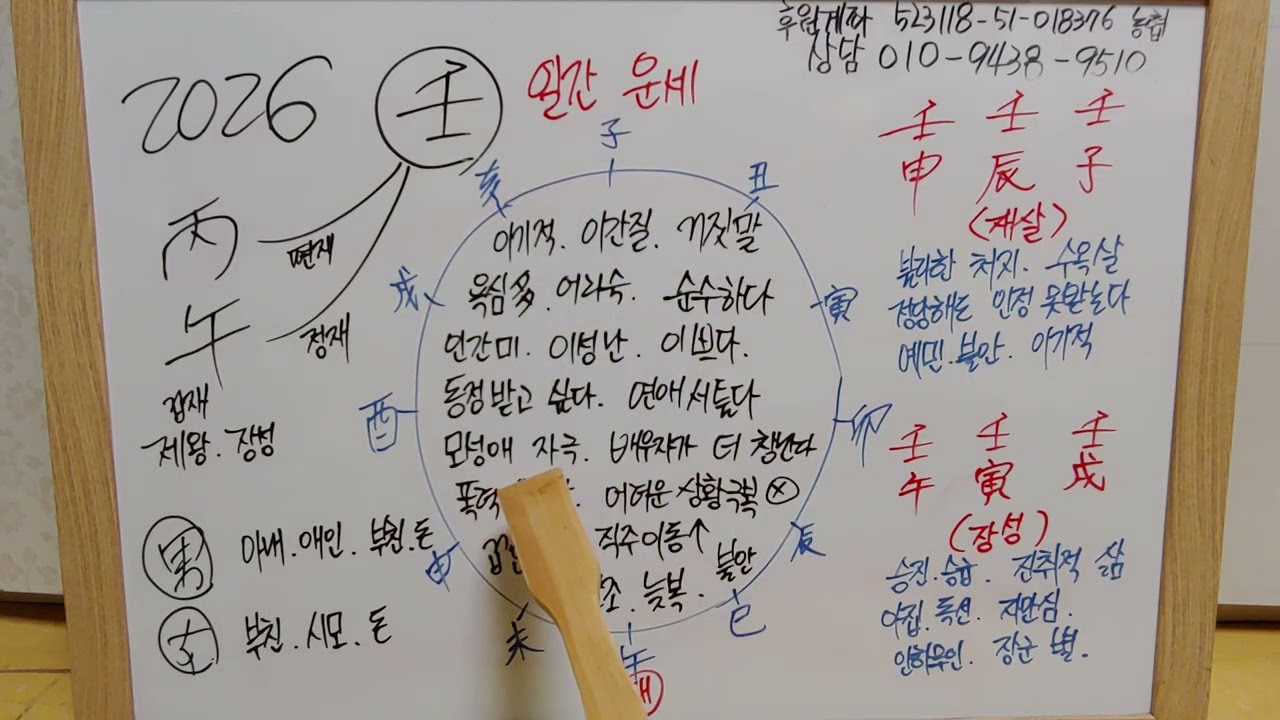 후원계좌 523118-51-018376 농협
상담 010-9438-9510
2026 壬 일간 운세
丙 편재
午 정재
겁재
제왕. 장성
男 아내. 애인. 부친. 돈
女 부친. 시모. 돈
子
丑
寅
卯
辰
巳
午
未
申
酉
戌
亥
이기적. 이간질. 거짓말
욕심多. 어리숙. 순수하다
인간미. 이성난. 이쁘다.
동정받고 싶다. 연애서툴다
모성애 자극. 배우자가 더 잘난다
어려운 상황극복 ⓧ
직주이동↑
늦복. 불안
壬 壬 壬
申 辰 子
(재살)
불리한 처지. 수옥살
정당해도 인정 못받는다
예민. 불안. 이기적
壬 壬 壬
午 寅 戌
(장성)
승진. 승급. 진취적 삶
아집. 독선. 자만심.
안하무인. 장군 별.